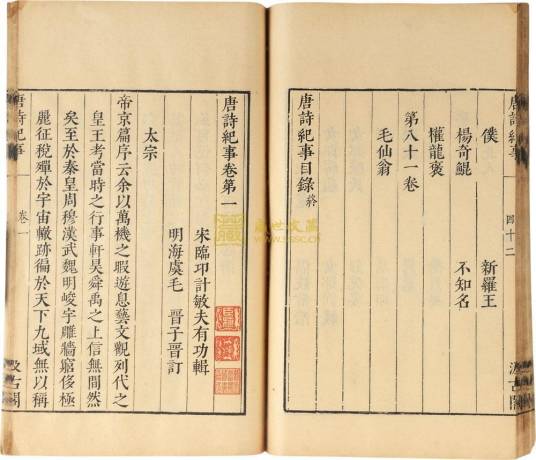 唐詩紀事 四十二 汲古閣
僕 新羅王
楊奇鯤 不知名
權龍褒
第八十一卷
毛仙翁
唐詩紀事目錄終
唐詩紀事卷第一
宋臨卭計敏夫有功輯
明海虞毛 晉子晉訂
太宗
帝京篇序云余以萬機之暇遊息藝文觀列代之
皇王考當時之行事軒昊舜禹之上信無間然
矣至於秦皇周穆漢武魏明峻宇雕牆窮侈極
麗征稅殫於宇宙轍跡徧於天下九域無以稱
唐詩紀事 卷一 汲古閣
盛世收藏
www.sssc.cn